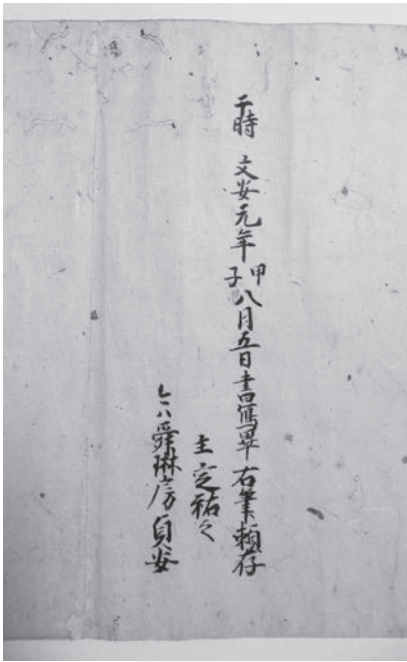 于時 文安元年甲子八月五日書写畢右筆頼存
主定祐之
今ハ舜琳房貞安